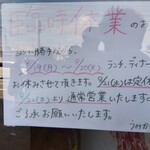 臨時休業のお
誠に勝手ながら、
8/19(月)〜8/20(火) ランチ、ディナー
お休みさせて頂きます。8/21(水)は定休
8/22(木)より通常営業いたします。
ご了承お願いいたします。